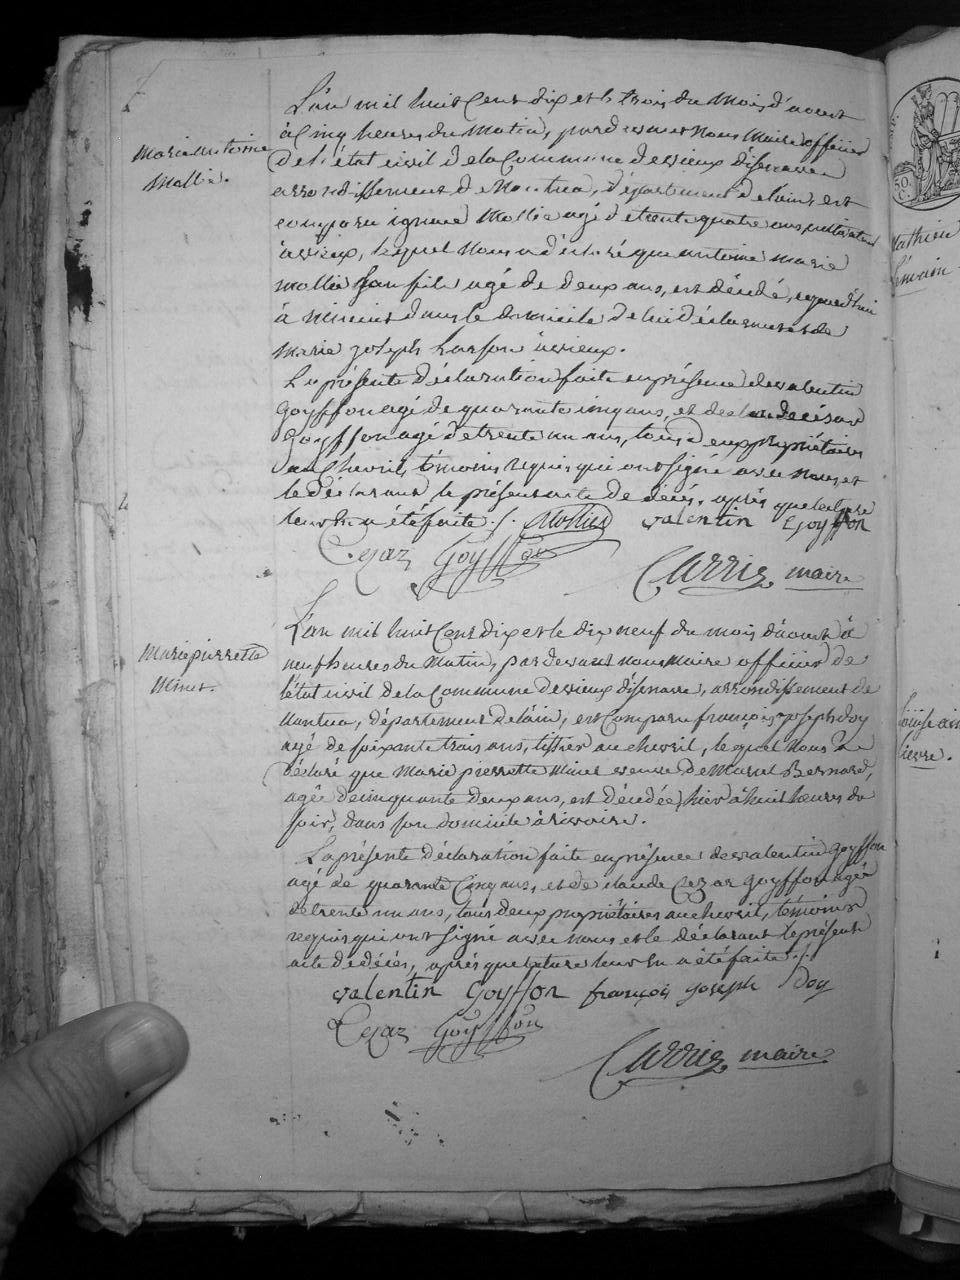 L'an mil huit Cent dix et le trois du Mois d'aoust
à Cinq heures du Matin, pardevant nous Maire officier
Marie antoine
Mollie.
De l'état civil de la Commune de vieux d'isenave
arrondissement de Nantua, département de l'ain, est
comparu ignace Mollie agé de trente quatre ans, cultivateur
à vieux, lequel nous a déclaré que antoine marie
mollie son fils agé de deux ans, est décédé, aujourd'hui
à dans le domicile de lui déclarant et de
Marie Joseph à vieux.
La présente déclaration faite en présence de valentin
Goyffon agé de quarante cinq ans, et de claude César
Goyffon agé de trente un ans, tous deux propriétaires
au Chevril, témoins requis qui ont signé avec nous et
le déclarant le présent acte de décès, après que lecture
leur en a été faite ./. Mollie valentin Goyffon
Cezar Goyffon
Carrier maire
L'an mil huit Cent dix et le dix neuf du mois d'aoust à
Marie pierrette
Minet.
neuf heures du Matin, par devant nous Maire officier de
l'état civil de la Commune de vieux d'isenave, arrondissement de
Nantua, département de l'ain, est Comparu françois joseph Doy
agé de soixante trois ans, tissier au chevril, lequel nous a
déclaré que Marie pierrette Minet veuve de Marcel Bernard,
agée de cinquante deux ans, est décédée, hier à huit heures du
soir, dans son domicile à rivoire.
La présente déclaration faite en présence de valentin Goyffon
agé de quarante Cinq ans, et de claude Cezar Goyffon agé
de trente un ans, tous deux propriétaires au chevril, témoins
requis qui ont signé avec nous et le déclarant le présent
acte de décès, après que lecture leur en a été faite ./.
valentin Goyffon françois joseph Doy
Cezar Goyffon
Carrier maire
50
C.
Mathieu